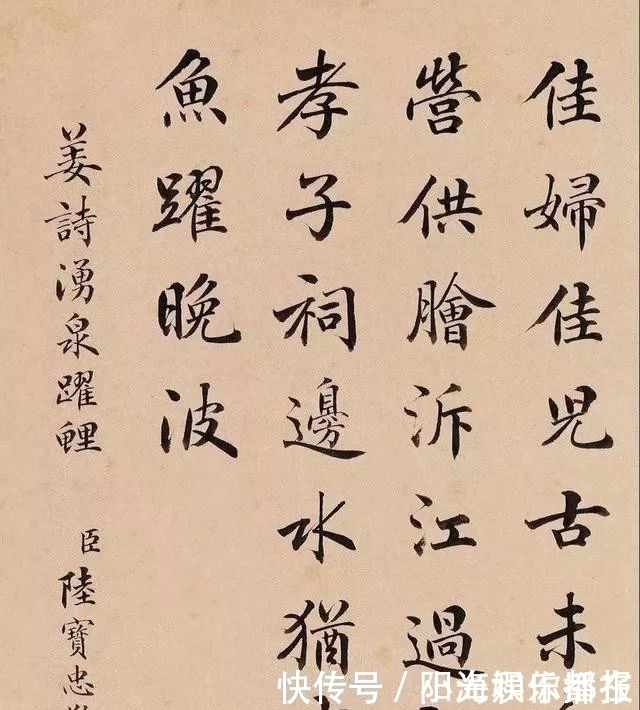 佳婦佳兒古未
營供膾泝江過
孝子祠邊水猶
魚躍晚波
姜詩湧泉躍鯉
臣陸寶忠
快传号／阳海娱乐播报